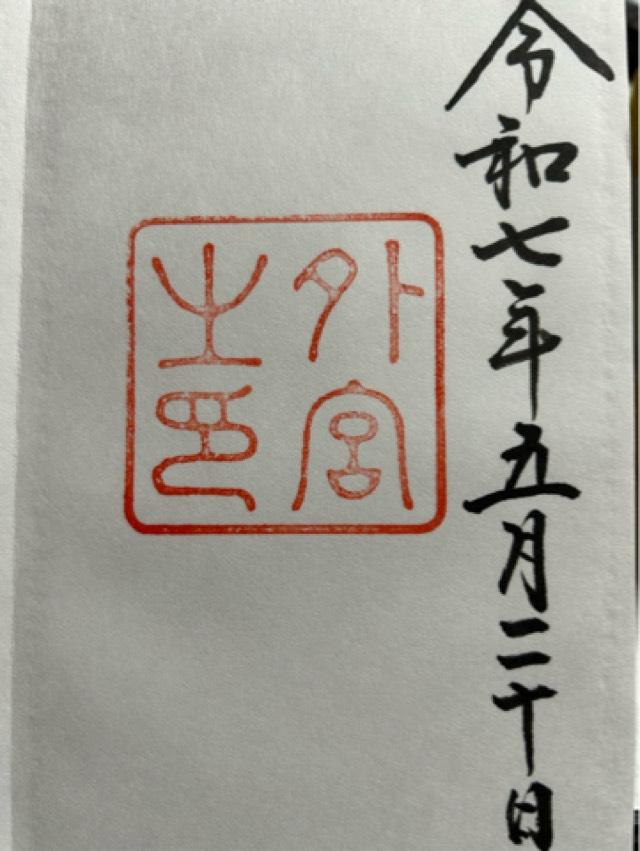 令和七年五月二十日
外宮
之印